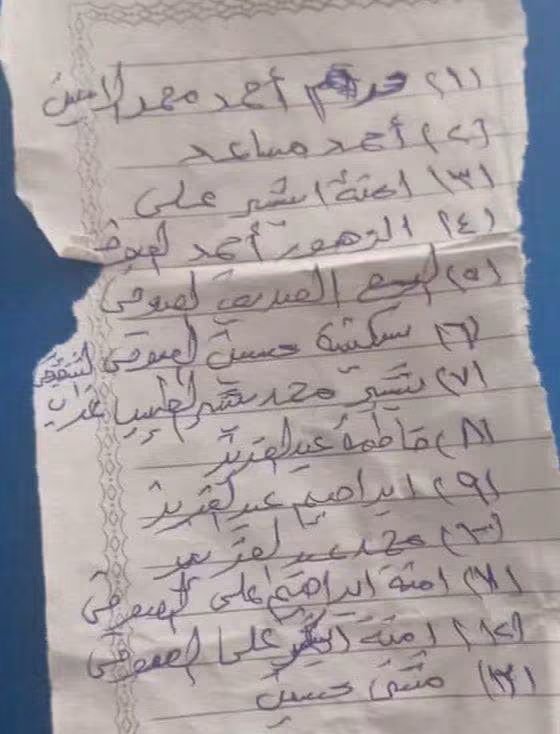 (١) مريم أحمد محمد الامين
(٢) أحمد مساعد
(٣) امنة البشير علي
(٤) الزهور أحمد الصوفي
(٥) الصديق الصوفي
(٦) سكينة حسين الصوفي
(٧) بشير محمد بشير الطيب
(٨) فاطمة عبدالعزيز
(٩) ابراهيم عبدالعزيز
(١٠) محمد عبدالعزيز
(١١) امنة ابراهيم على الصوفي
(١٢) امنة على الصوفي
(١٣) مثنى حسين